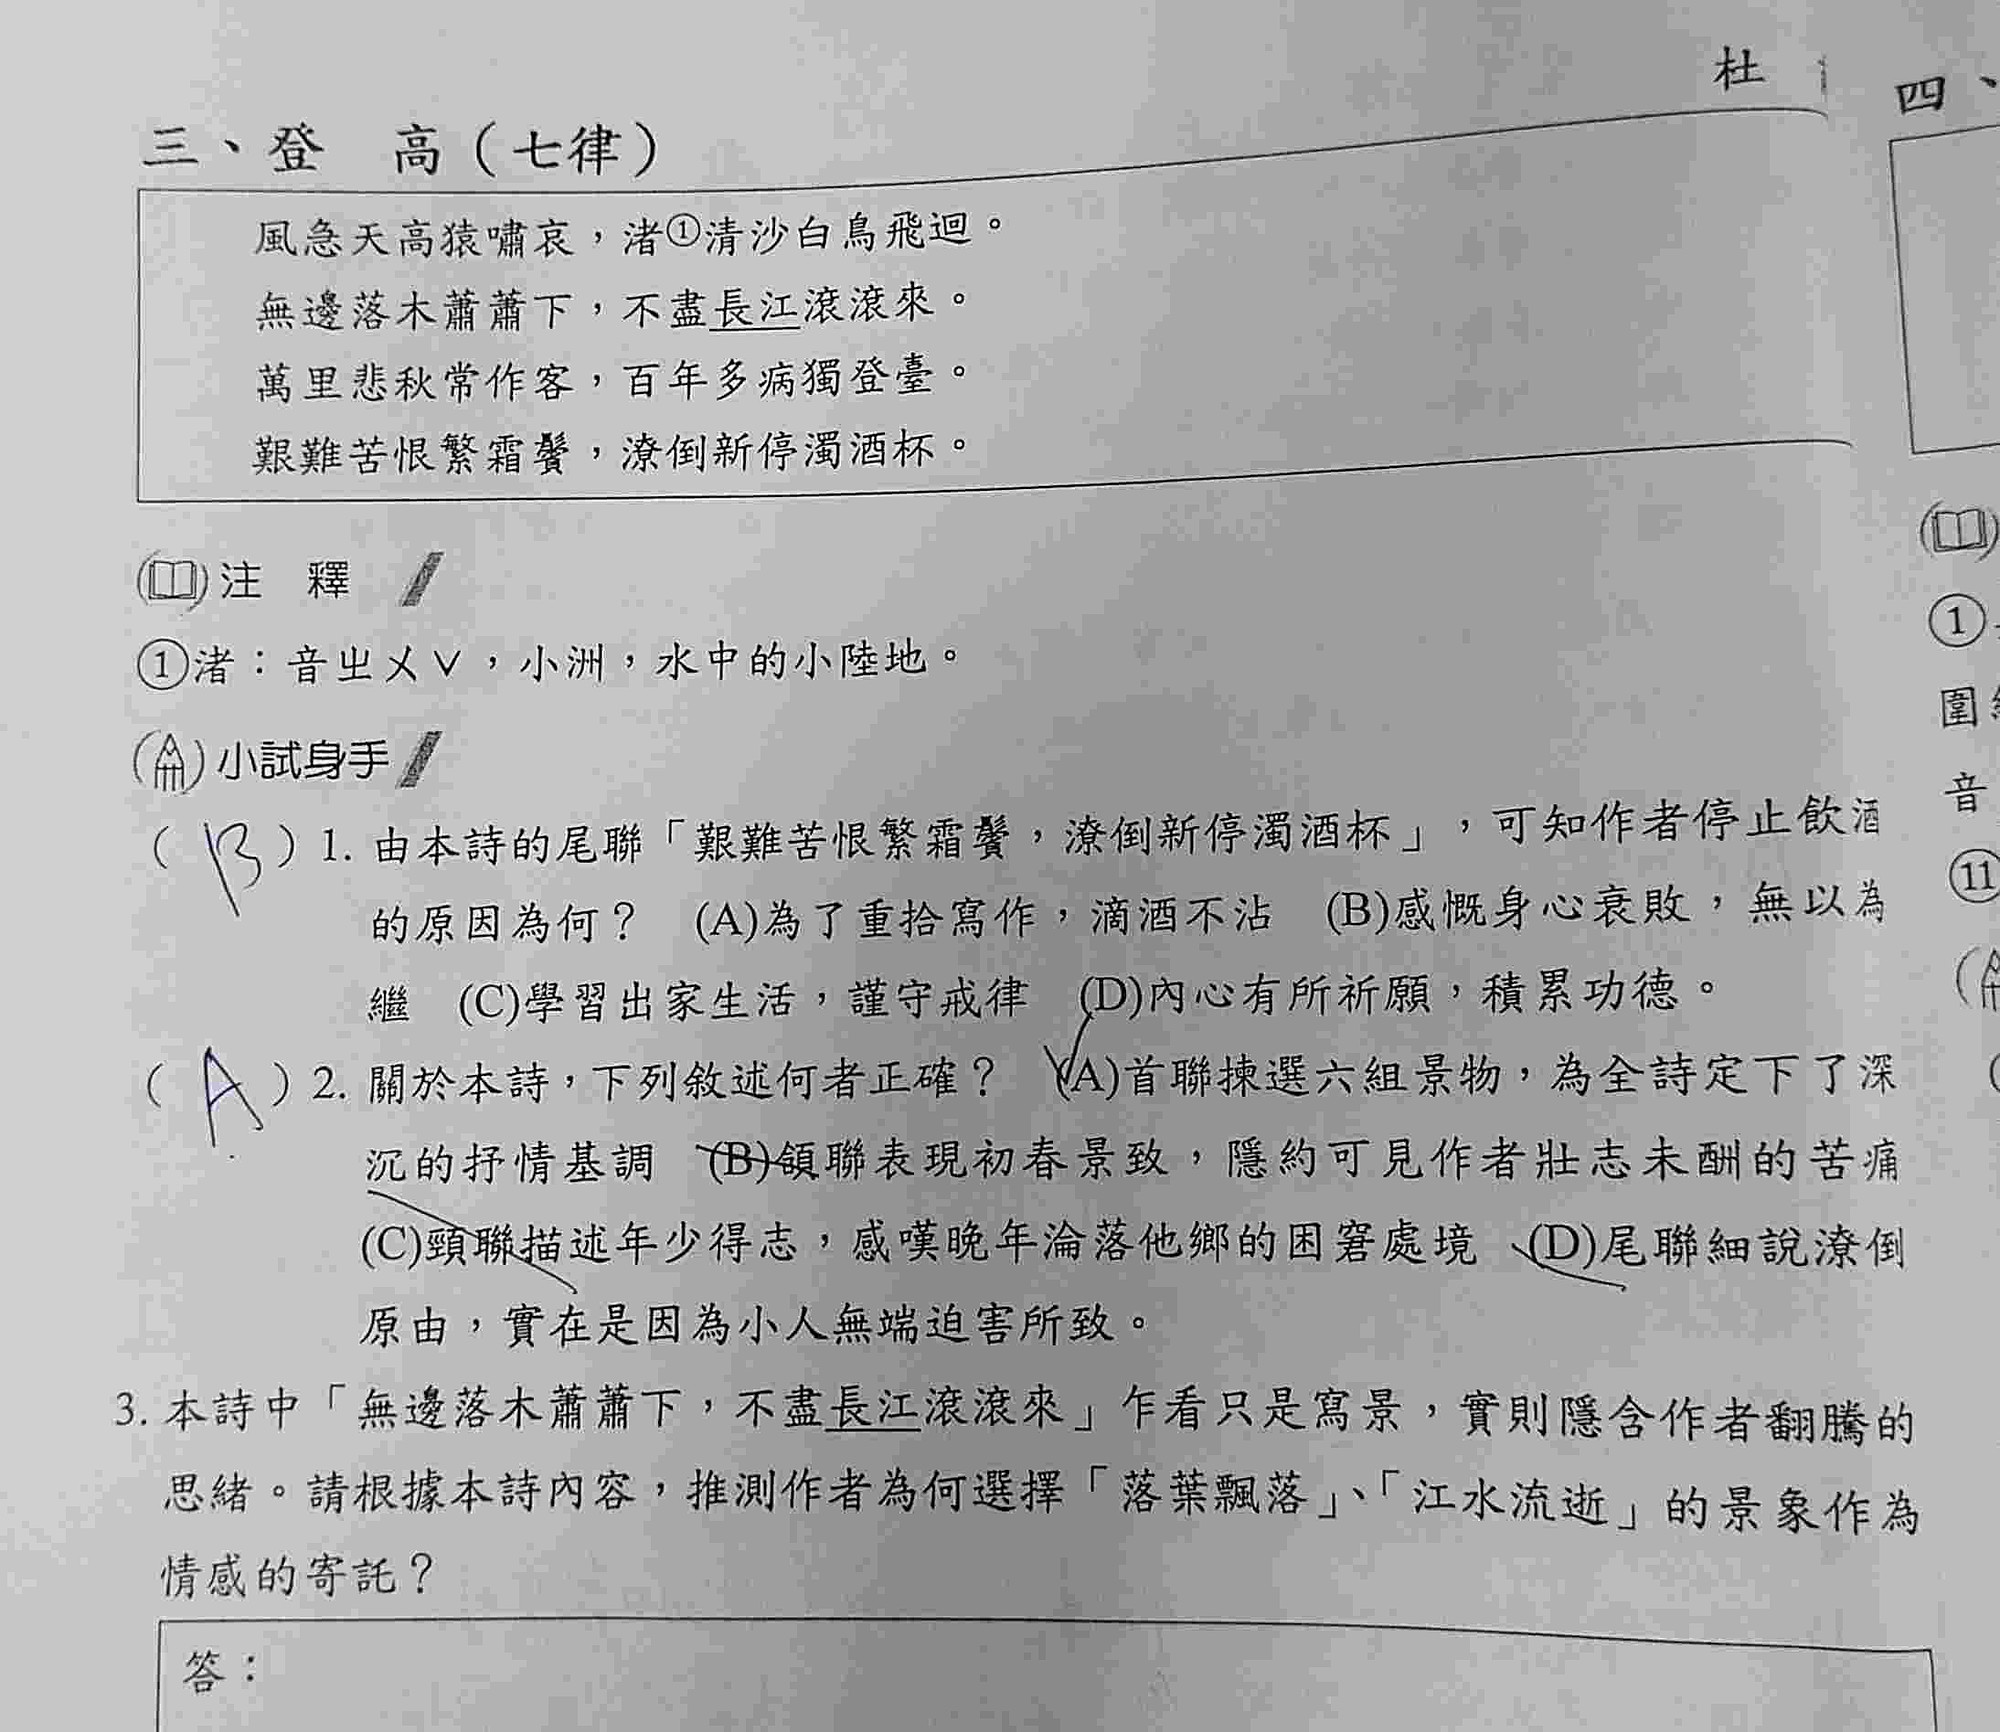 杜
三、登　高（七律）
風急天高猿嘯哀，渚①清沙白鳥飛迴。
無邊落木蕭蕭下，不盡長江滾滾來。
萬里悲秋常作客，百年多病獨登臺。
艱難苦恨繁霜鬢，潦倒新停濁酒杯。
注　釋
①渚：音ㄓㄨˇ，小洲，水中的小陸地。
小試身手
（B）1. 由本詩的尾聯「艱難苦恨繁霜鬢，潦倒新停濁酒杯」，可知作者停止飲酒
的原因為何？　(A)為了重拾寫作，滴酒不沾　(B)感慨身心衰敗，無以為
繼　(C)學習出家生活，謹守戒律　(D)內心有所祈願，積累功德。
（A）2. 關於本詩，下列敘述何者正確？　(A)首聯揀選六組景物，為全詩定下了深
沉的抒情基調　(B)頷聯表現初春景致，隱約可見作者壯志未酬的苦痛
(C)頸聯描述年少得志，感嘆晚年淪落他鄉的困窘處境　(D)尾聯細說潦倒
原由，實在是因為小人無端迫害所致。
3. 本詩中「無邊落木蕭蕭下，不盡長江滾滾來」乍看只是寫景，實則隱含作者翻騰的
思緒。請根據本詩內容，推測作者為何選擇「落葉飄落」、「江水流逝」的景象作為
情感的寄託？
答：
四、
①
圍
音
⑪